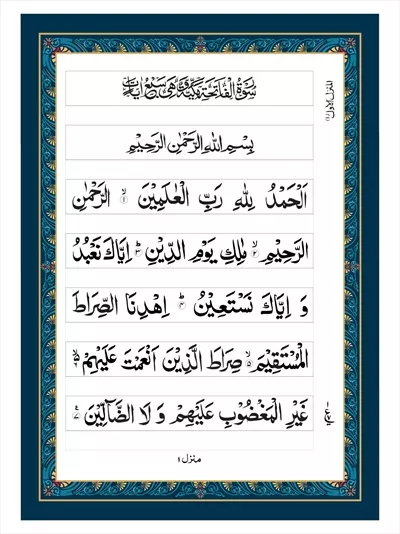 سُوْرَةُ الْفَاتِحَةِ مَكِّيَّةٌ وَّهِيَ سَبْعُ اٰيَاتٍ
المنزل الاول (۱)
بِسْمِ اللّٰهِ الرَّحْمٰنِ الرَّحِيْمِ
اَلْحَمْدُ لِلّٰهِ رَبِّ الْعٰلَمِيْنَ ۙ۱ الرَّحْمٰنِ
الرَّحِيْمِ ۙ۲ مٰلِكِ يَوْمِ الدِّيْنِ ؕ۳ اِيَّاكَ نَعْبُدُ
وَ اِيَّاكَ نَسْتَعِيْنُ ؕ۴ اِهْدِنَا الصِّرَاطَ
الْمُسْتَقِيْمَ ۙ۵ صِرَاطَ الَّذِيْنَ اَنْعَمْتَ عَلَيْهِمْ ۙ۬۶
غَيْرِ الْمَغْضُوْبِ عَلَيْهِمْ وَ لَا الضَّآلِّيْنَ ۧ۷
منزل ۱